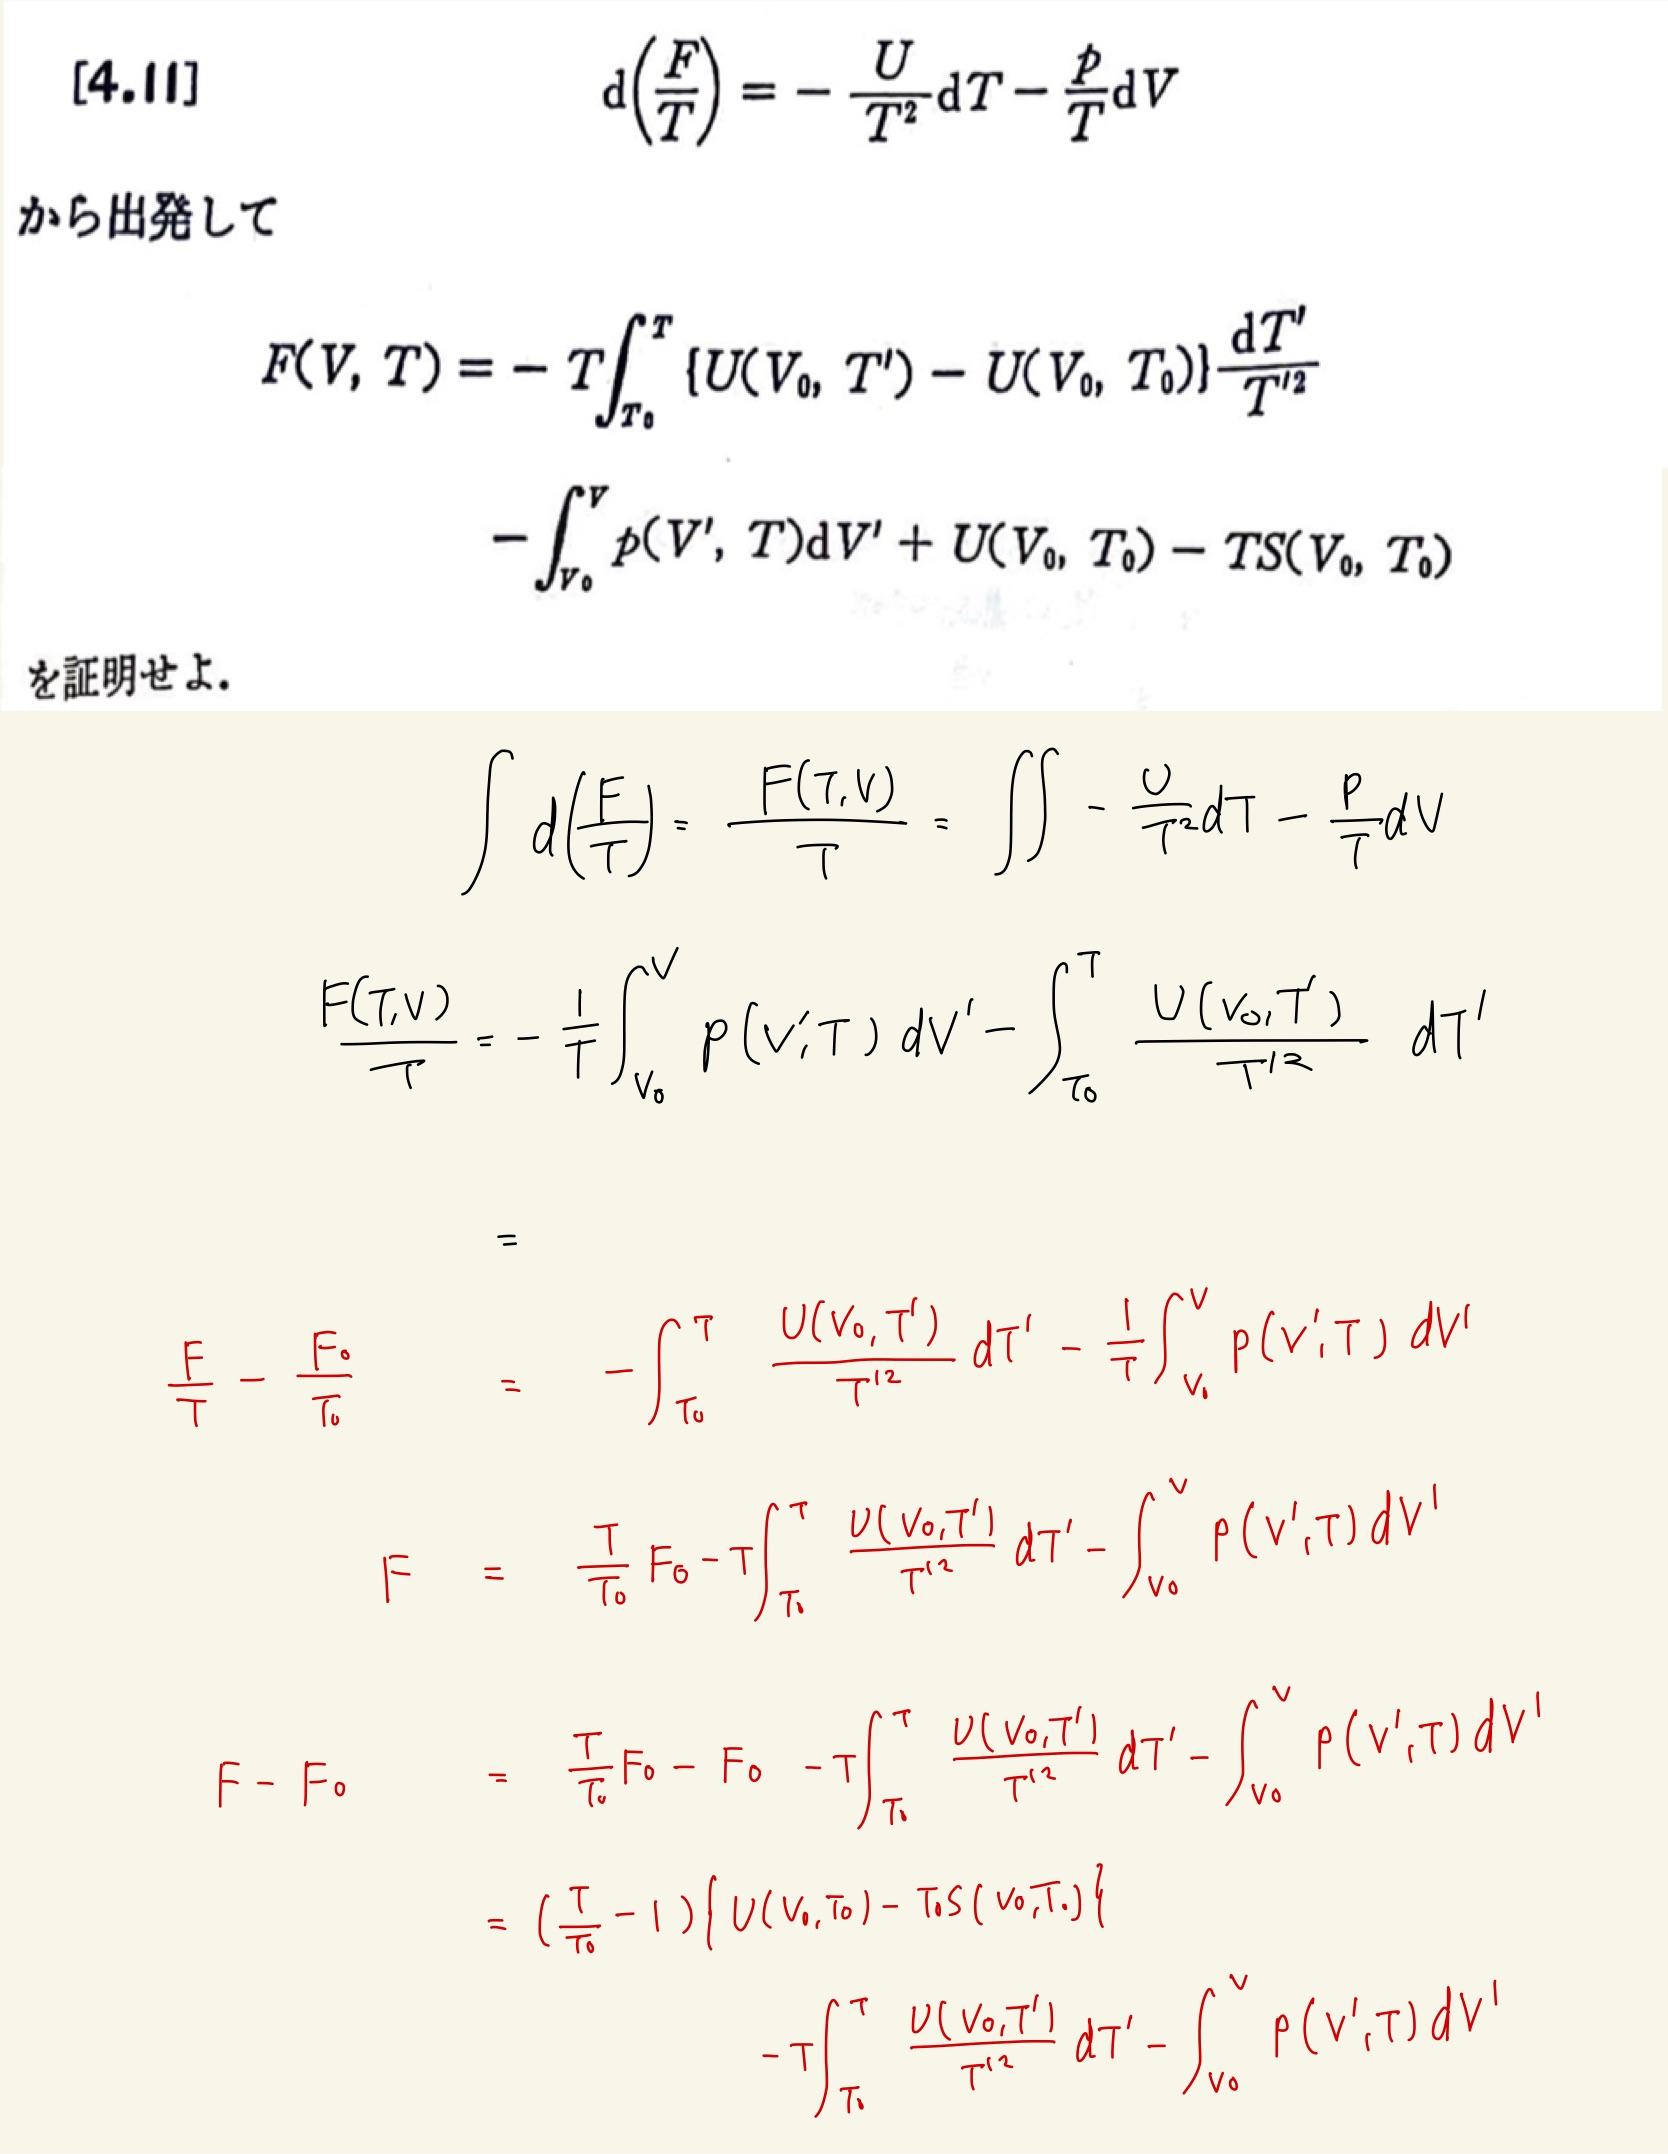 [4.11] d(F/T) = − U/T² dT − p/T dV
から出発して
F(V, T) = − T∫_{T₀}^{T} {U(V₀, T′) − U(V₀, T₀)} dT′/T′²
− ∫_{V₀}^{V} p(V′, T)dV′ + U(V₀, T₀) − TS(V₀, T₀)
を証明せよ.
∫ d(F/T) = F(T,V)/T = ∬ − U/T² dT − P/T dV
F(T,V)/T = − 1/T ∫_{V₀}^{V} p(V′,T) dV′ − ∫_{T₀}^{T} U(V₀,T′)/T′² dT′
=
F/T − F₀/T₀ = − ∫_{T₀}^{T} U(V₀,T′)/T′² dT′ − 1/T ∫_{V₀}^{V} p(V′,T) dV′
F = T/T₀ F₀ − T∫_{T₀}^{T} U(V₀,T′)/T′² dT′ − ∫_{V₀}^{V} p(V′,T) dV′
F − F₀ = T/T₀ F₀ − F₀ − T∫_{T₀}^{T} U(V₀,T′)/T′² dT′ − ∫_{V₀}^{V} p(V′,T) dV′
= (T/T₀ − 1){U(V₀,T₀) − T₀S(V₀,T₀)}
− T∫_{T₀}^{T} U(V₀,T′)/T′² dT′ − ∫_{V₀}^{V} p(V′,T) dV′